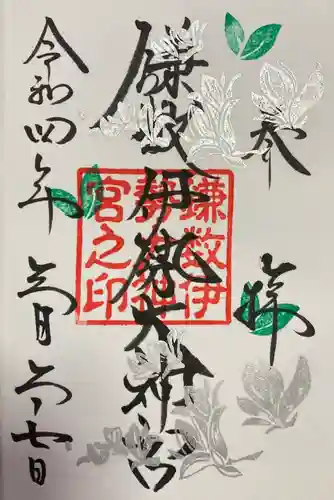 奉拝
鎌数伊勢大神宮
鎌數伊
勢大神
宮之印
令和四年 月 七日